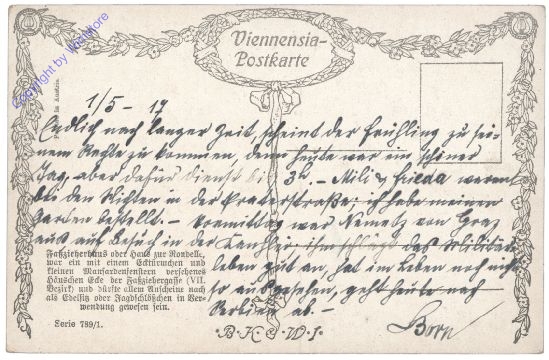 Copyright by Ilse More
Viennensia-
Postkarte
Made in Austria.
1/5 - 17
Endlich nach langer Zeit, scheint der Frühling zu sei-
nem Rechte zu kommen, denn heute war ein schöner
Tag, aber dafür Dienst bis 3h. - Mili & Frieda waren
bei den Nichten in der Praterstraße; ich habe meinen
Garten bestellt. - Vormittag war Nemetz von Graz
aus auf Besuch in der Kanzlei - ihm schlägt das Militär-
leben gut an, hat im Leben noch nicht
so ausgesehen, geht heute nach
Berlin ab. -
Faßzieherhaus oder Haus zur Rondelle,
war ein mit einem Ecktürmchen und
kleinen Mansardenfenstern versehenes
Häuschen Ecke der Faßziehergasse (VII.
Bezirk) und dürfte allem Anscheine nach
als Edelsitz oder Jagdschlößchen in Ver-
wendung gewesen sein.
Serie 789/1.
B·K·W·I·